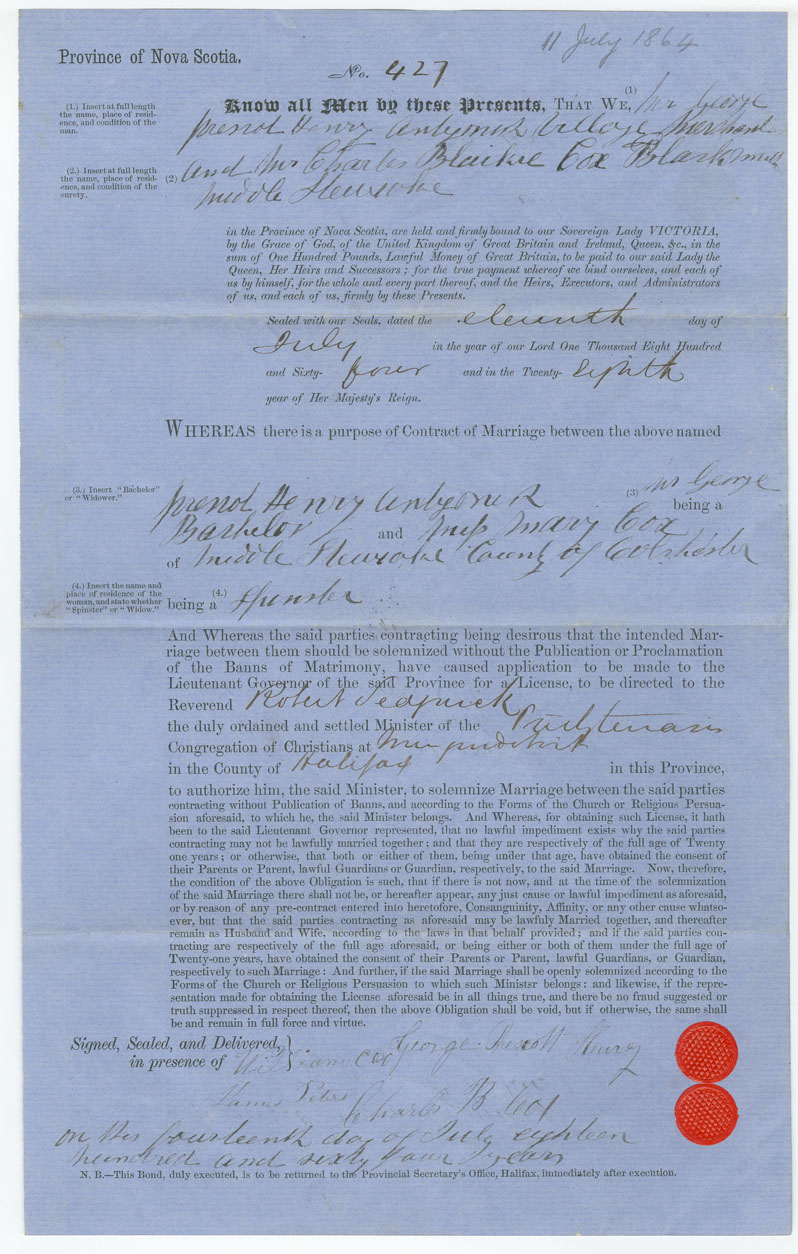 11 July 1864
Province of Nova Scotia.
No. 427
(1.) Insert at full length
the name, place of resid-
ence, and condition of the
man.
Know all Men by these Presents, THAT WE, (1) Mr George
Henry Antigonish Village Merchant
(2.) Insert at full length
the name, place of resid-
ence, and condition of the
surety.
(2) and Mr Charles Blaikie Cox Black
Middle Stewiacke
in the Province of Nova Scotia, are held and firmly bound to our Sovereign Lady VICTORIA,
by the Grace of God, of the United Kingdom of Great Britain and Ireland, Queen, &c., in the
sum of One Hundred Pounds, Lawful Money of Great Britain, to be paid to our said Lady the
Queen, Her Heirs and Successors; for the true payment whereof we bind ourselves, and each of
us by himself, for the whole and every part thereof, and the Heirs, Executors, and Administrators
of us, and each of us, firmly by these Presents.
Sealed with our Seals, dated the eleventh day of
July in the year of our Lord One Thousand Eight Hundred
and Sixty- four and in the Twenty- eighth
year of Her Majesty's Reign.
WHEREAS there is a purpose of Contract of Marriage between the above named
(3.) Insert "Bachelor"
or "Widower."
Mr George
Henry Antigonish (3) being a
Bachelor and Miss Mary Cox
of Middle Stewiacke County of Colchester
(4.) Insert the name and
place of residence of the
woman, and state whether
"Spinster" or "Widow."
being a (4.) Spinster
And Whereas the said parties contracting being desirous that the intended Mar-
riage between them should be solemnized without the Publication or Proclamation
of the Banns of Matrimony, have caused application to be made to the
Lieutenant Governor of the said Province for a License, to be directed to the
Reverend Robert Sedgwick
the duly ordained and settled Minister of the
Congregation of Christians at Musquodoboit
in the County of Halifax in this Province,
to authorize him, the said Minister, to solemnize Marriage between the said parties
contracting without Publication of Banns, and according to the Forms of the Church or Religious Persua-
sion aforesaid, to which he, the said Minister belongs. And Whereas, for obtaining such License, it hath
been to the said Lieutenant Governor represented, that no lawful impediment exists why the said parties
contracting may not be lawfully married together; and that they are respectively of the full age of Twenty
one years; or otherwise, that both or either of them, being under that age, have obtained the consent of
their Parents or Parent, lawful Guardians or Guardian, respectively, to the said Marriage. Now, therefore,
the condition of the above Obligation is such, that if there is not now, and at the time of the solemnization
of the said Marriage there shall not be, or hereafter appear, any just cause or lawful impediment as aforesaid,
or by reason of any pre-contract entered into heretofore, Consanguinity, Affinity, or any other cause whatso-
ever, but that the said parties contracting as aforesaid may be lawfuly Married together, and thereafter
remain as Husband and Wife, according to the laws in that behalf provided; and if the said parties con-
tracting are respectively of the full age aforesaid, or being either or both of them under the full age of
Twenty-one years, have obtained the consent of their Parents or Parent, lawful Guardians, or Guardian,
respectively to such Marriage: And further, if the said Marriage shall be openly solemnized according to the
Forms of the Church or Religious Persuasion to which such Ministsr belongs: and likewise, if the repre-
sentation made for obtaining the License aforesaid be in all things true, and there be no fraud suggested or
truth suppressed in respect thereof, then the above Obligation shall be void, but if otherwise, the same shall
be and remain in full force and virtue.
Signed, Sealed, and Delivered,
in presence of
William Cox George Prescott Henry
James Charles B Cox
on this fourteenth day of July eighteen
hundred and sixty four years
N. B.—This Bond, duly executed, is to be returned to the Provincial Secretary's Office, Halifax, immediately after execution.